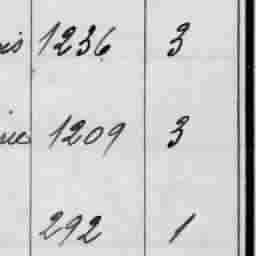 is 1236 3
ine 1209 3
292 1